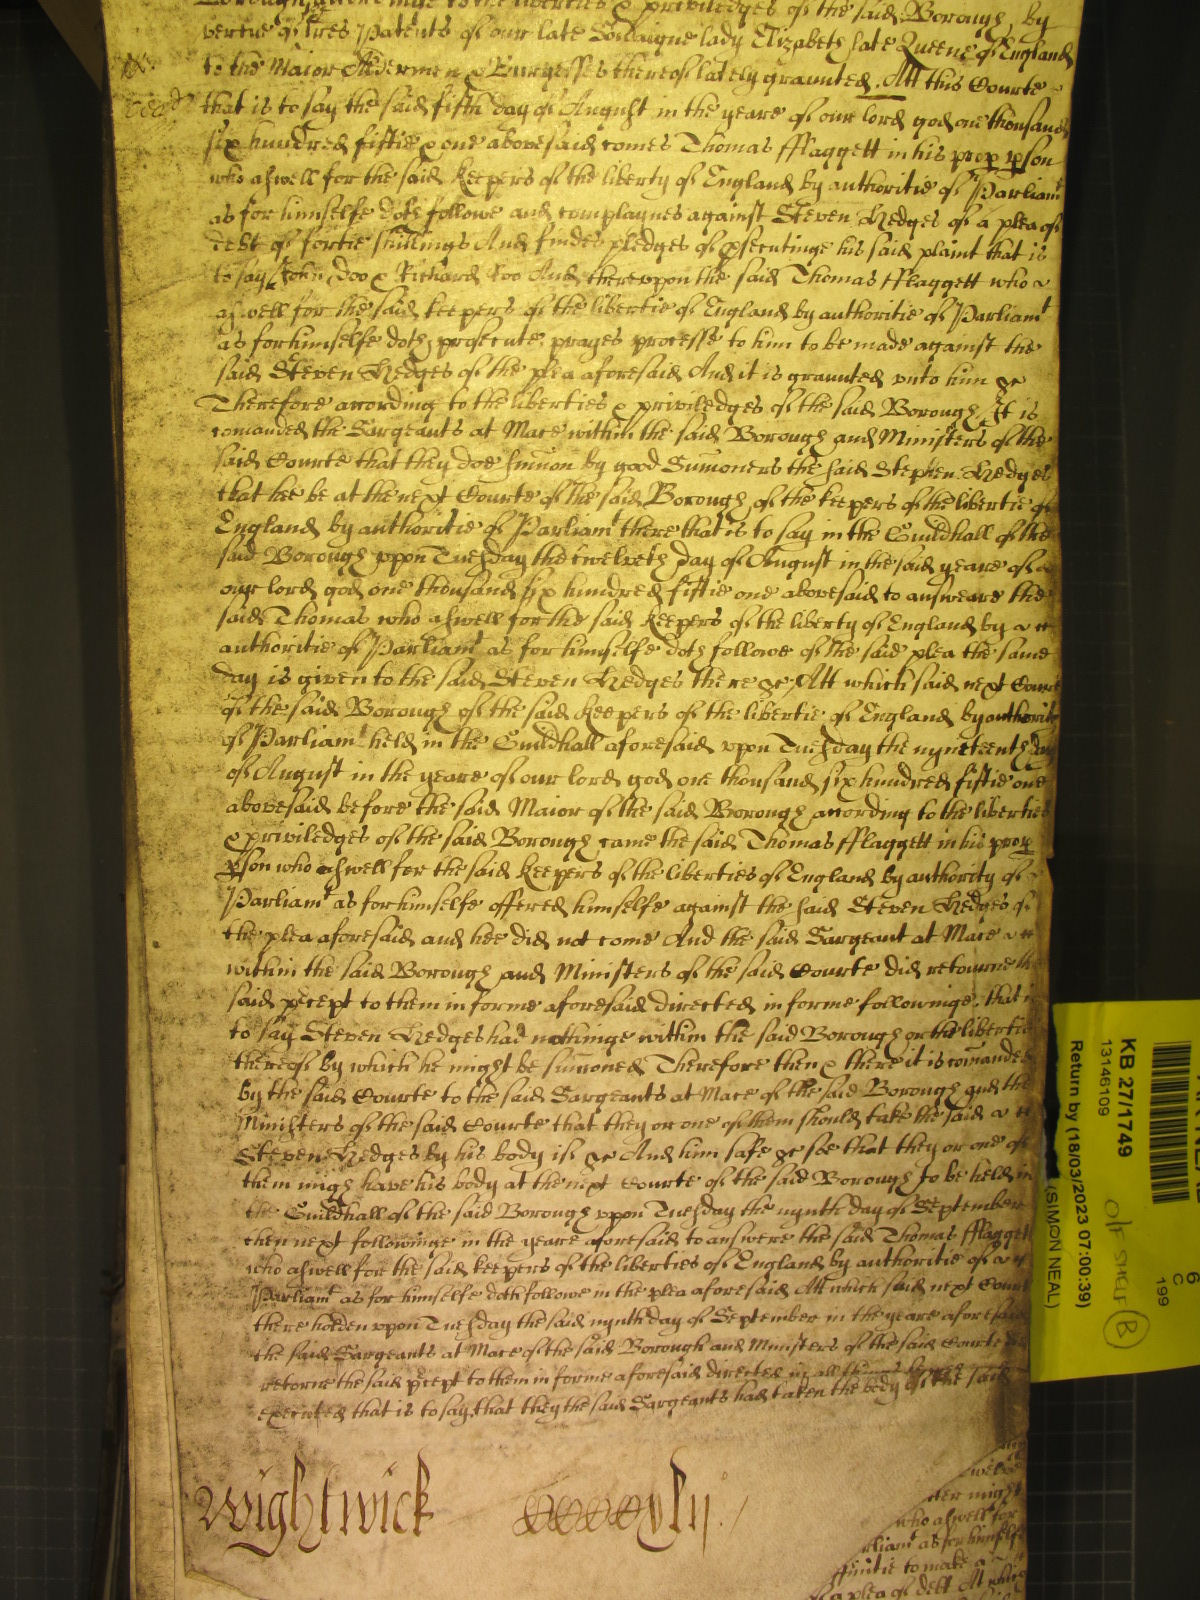 Borough, according to the liberties & priviledges of the said Borough, by
vertue of l'res Patents of our late Soveraigne lady Elizabeth late Queene of England
to the Maior Aldermen & Burgesses thereof lately graunted. Att this Courte
that is to say the said fifth day of August in the yeare of our lord god one thousand
six hundred fiftie & one abovesaid comes Thomas fflaggett in his prop pson
who aswell for the said Keepers of the liberty of England by authoritie of Parliamt
as for himselfe doth followe and complaynes against Steven Hedges of a plea of
debt of fortie shillings And findes pledges of psecutinge his said plaint that is
to say John Doo & Richard Roo And thereupon the said Thomas fflaggett who
aswell for the said Keepers of the libertie of England by authoritie of Parliamt
as for himselfe doth prosecute, prayes processe to him to be made against the
said Steven Hedges of the plea aforesaid And it is graunted unto him &c
Therefore according to the liberties & priviledges of the said Borough It is
comanded the Sargeants at Mace within the said Borough and Ministers of the
said Courte that they doe sumon by good Sumoners the said Stephen Hedges
that hee be at the next Courte of the said Borough of the Keepers of the libertie of
England by authoritie of Parliamt there that is to say in the Guildhall of the
said Borough uppon Tuesday the twelveth day of August in the said yeare of
our lord god one thousand six hundred fiftie one abovesaid to answeare the
said Thomas who aswell for the said Keepers of the liberty of England by
authoritie of Parliamt as for himselfe doth followe of the said plea the same
day is given to the said Steven Hedges there &c, Att which said next Courte
of the said Borough of the said Keepers of the libertie of England by authoritie
of Parliamt held in the Guildhall aforesaid uppon Tuesday the nyneteenth day
of August in the yeare of our lord god one thousand six hundred fiftie one
abovesaid before the said Maior of the said Borough according to the liberties
& priviledges of the said Borough came the said Thomas fflaggett in his prop
pson who aswell for the said Keepers of the liberties of England by authority of
Parliamt as for himselfe offered himselfe against the said Steven Hedges of
the plea aforesaid and hee did not come And the said Sargeant at Mace
within the said Borough and Ministers of the said Courte did retourne the
said pcept to them in forme aforesaid directed in forme followinge, that is
to say Steven Hedges had nothinge within the said Borough or the libertie
thereof by which he might be sumoned Therefore then & there it is comanded
by the said Courte to the said Sargeants at Mace of the said Borough and the
Ministers of the said Courte that they or one of them should take the said
Steven Hedges by his body if &c And him safe &c soe that they or one of
them migh have his body at the next Courte of the said Borough to be held in
the Guildhall of the said Borough uppon Tuesday the nynth day of September
then next followinge in the yeare aforesaid to answere the said Thomas fflaggett
who aswell for the said Keepers of the liberties of England by authoritie of
Parliamt as for himselfe doth followe in the plea aforesaid Att which said next Courte
there holden uppon Tuesday the said nynth day of September in the yeare aforesaid
the said Sargeants at Mace of the said Borough and Ministers of the said Courte
retorne the said pcept to them in forme aforesaid directed in all
executed that is to say, that they the said Sargeants had taken the body of the said
Wightwick
who aswell for
rliamt as for himselfe
to make a
a plea of debt At which
KB 27/1749
13146109
Return by (18/03/2023 07:00:39)
(SIMON NEAL)
6
C
199
B